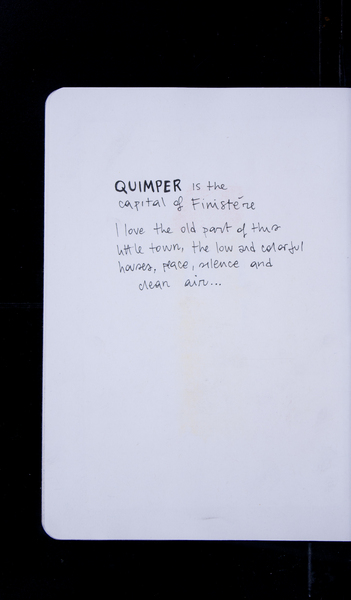 QUIMPER is the
capital of Finistère
I love the old part of this
little town, the low and colorful
houses, peace, silence and
clean air...